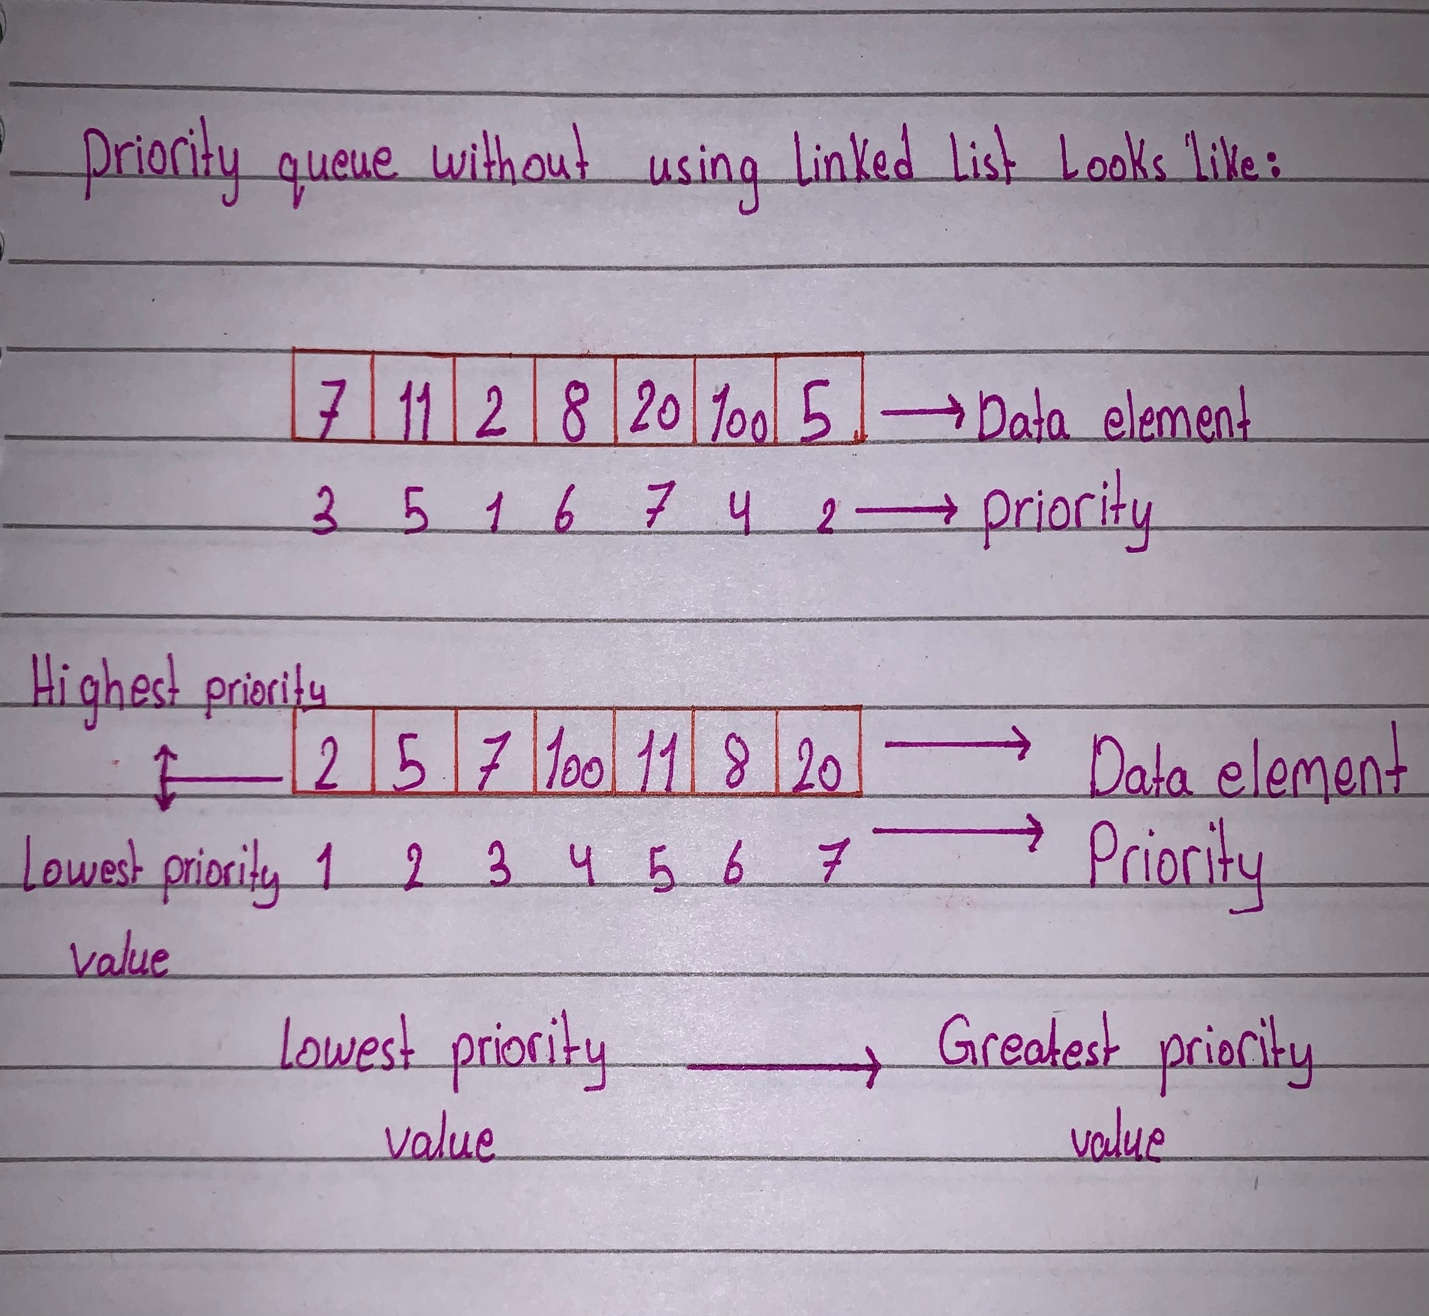 Priority queue without using Linked List Looks like:
7 11 2 8 20 100 5 → Data element
3 5 1 6 7 4 2 → priority
Highest priority
2 5 7 100 11 8 20 → Data element
Lowest priority 1 2 3 4 5 6 7 → Priority
value
Lowest priority → Greatest priority
value value